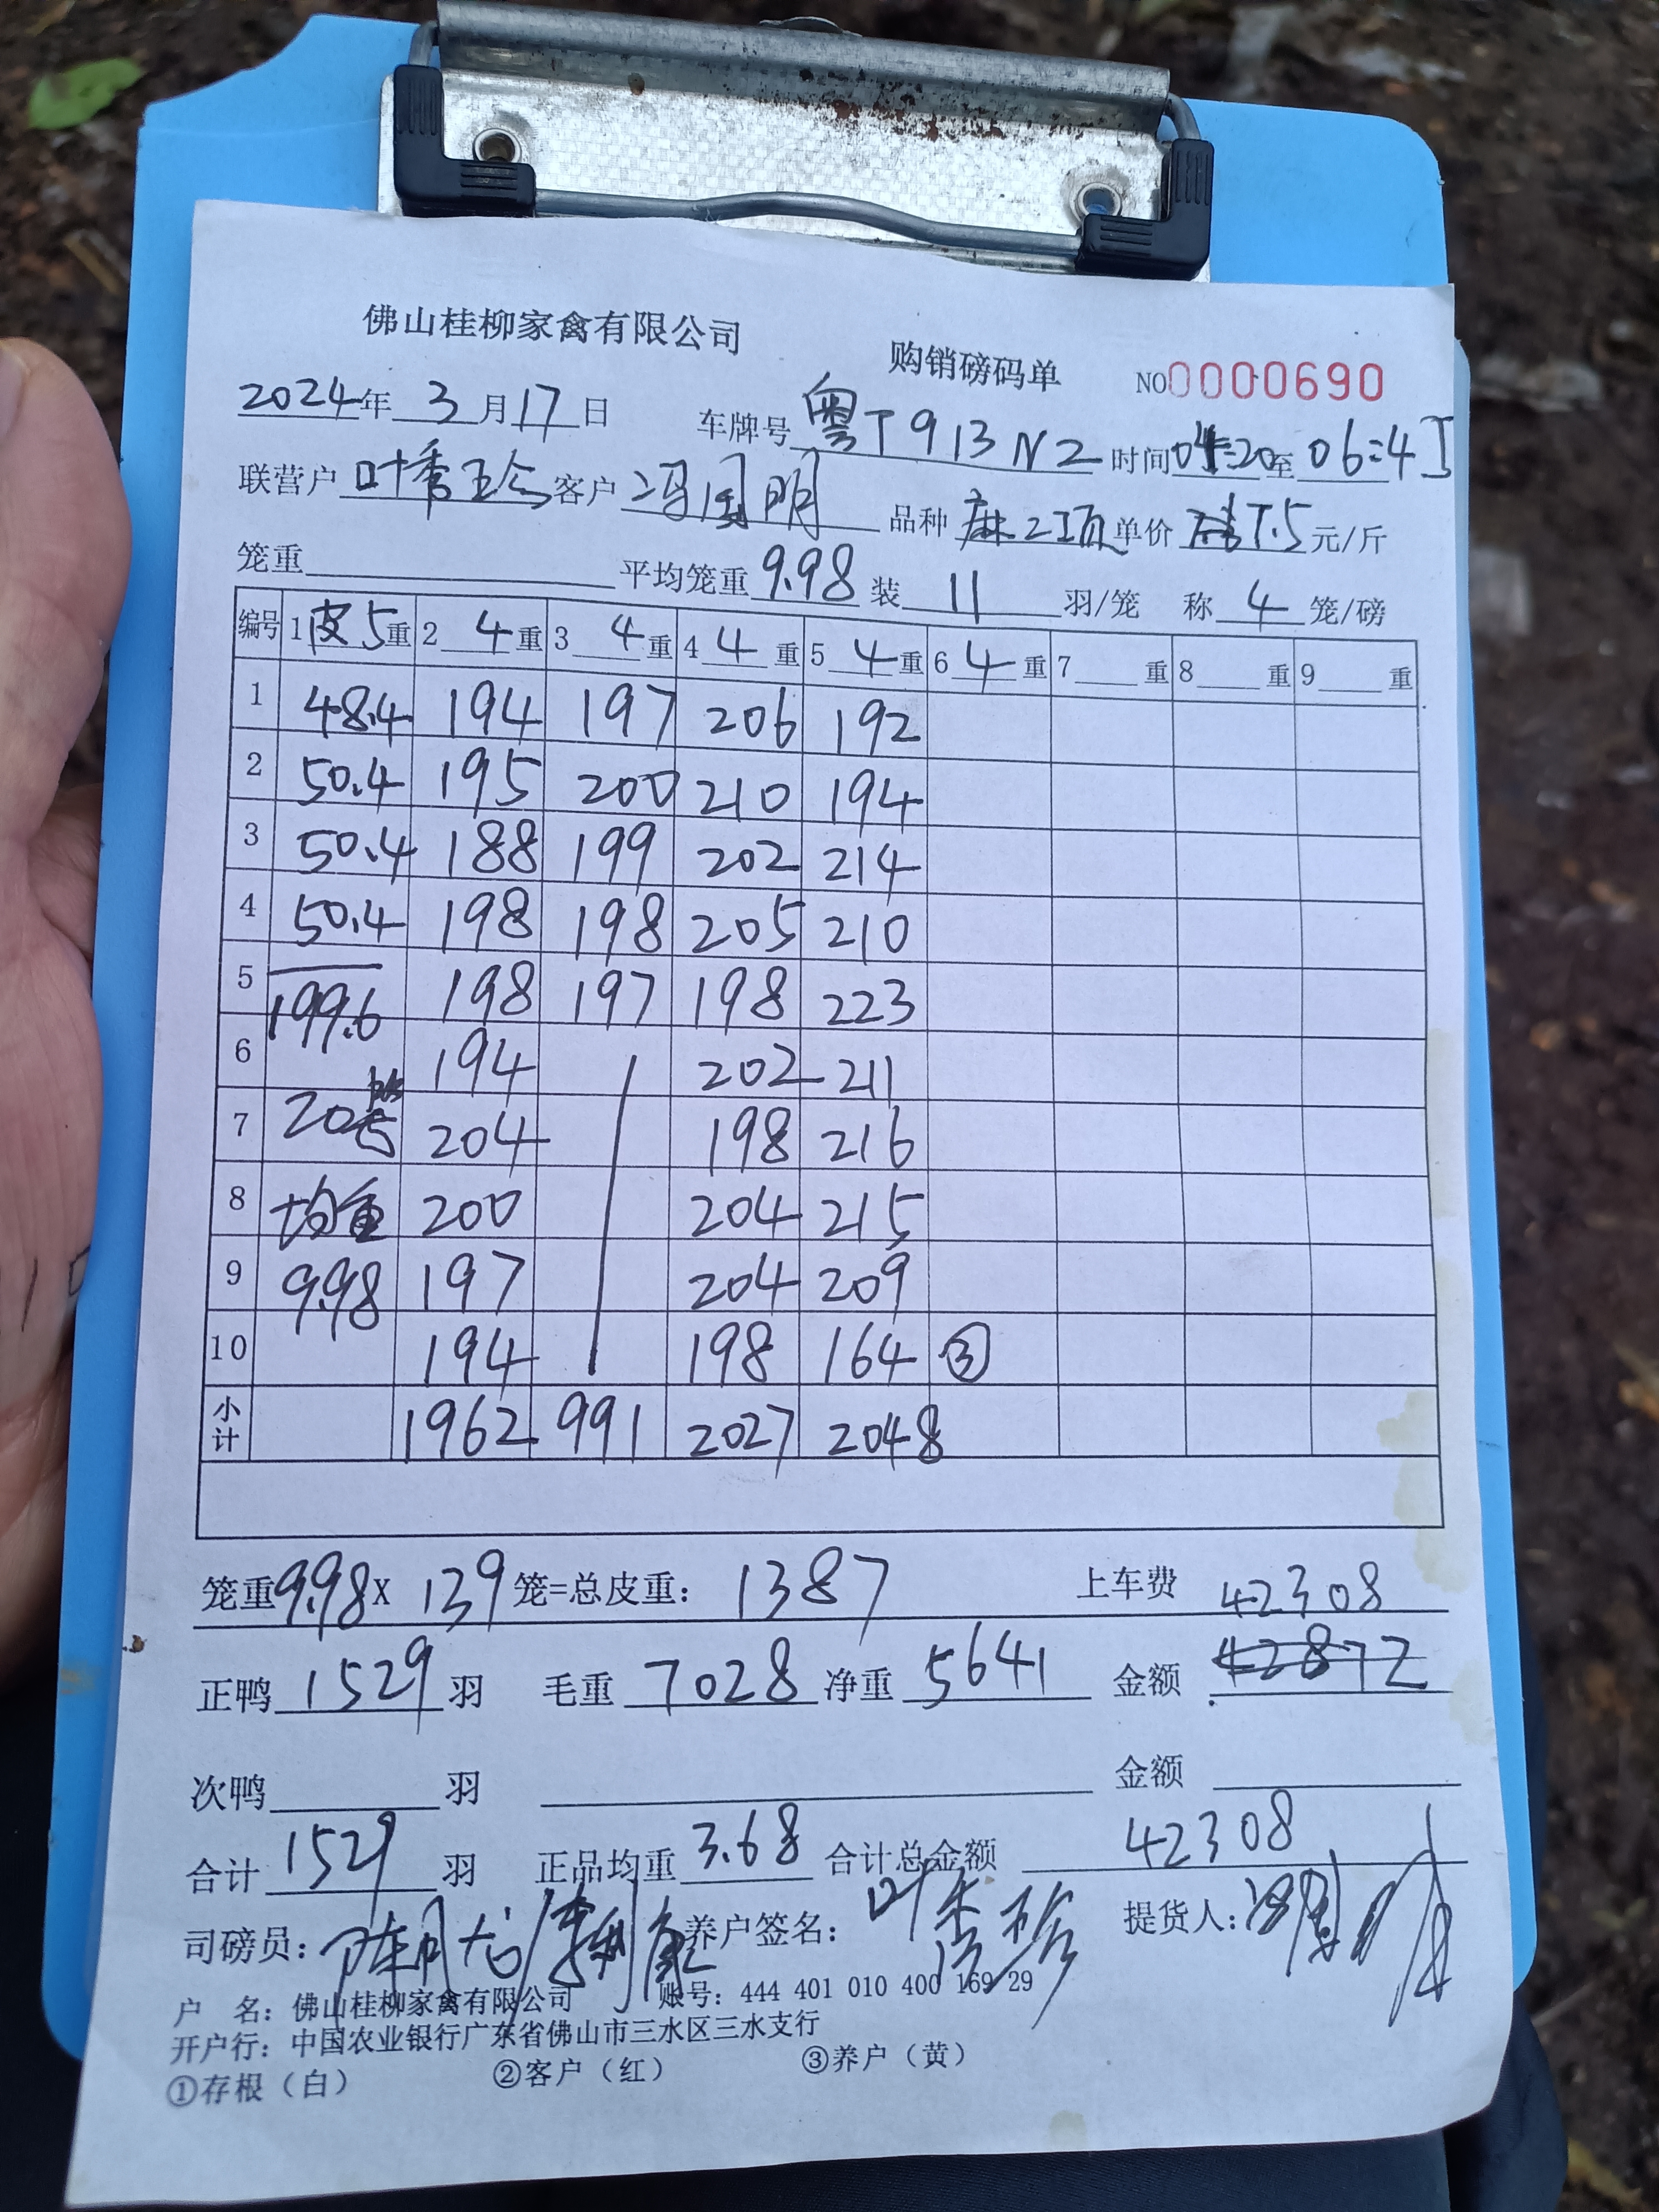 佛山桂柳家禽有限公司 购销磅码单 NO0000690
2024年 3 月 17 日 车牌号 粤T913N2 时间04:20至 06:45
联营户 叶秀珍 客户 冯国明 品种 麻2项 单价 7.5 元/斤
笼重 平均笼重 9.98 装 11 羽/笼 称 4 笼/磅
编号 1皮5重 2 4 重 3 4 重 4 4 重 5 4 重 6 4 重 7 重 8 重 9 重
1 48.4 194 197 206 192
2 50.4 195 200 210 194
3 50.4 188 199 202 214
4 50.4 198 198 205 210
5 199.6 198 197 198 223
6 194 202 211
7 20 204 198 216
8 均重 200 204 215
9 9.98 197 204 209
10 194 198 164 ③
小计 1962 991 2027 2048
笼重9.98X 139 笼=总皮重: 1387 上车费 42308
正鸭 1529 羽 毛重 7028 净重 5641 金额 42872
次鸭 羽 金额
合计 1529 羽 正品均重 3.68 合计总金额 42308
司磅员: 养户签名: 叶秀珍 提货人:
户 名: 佛山桂柳家禽有限公司 账号: 444 401 010 400 169 29
开户行: 中国农业银行广东省佛山市三水区三水支行
①存根（白） ②客户（红） ③养户（黄）